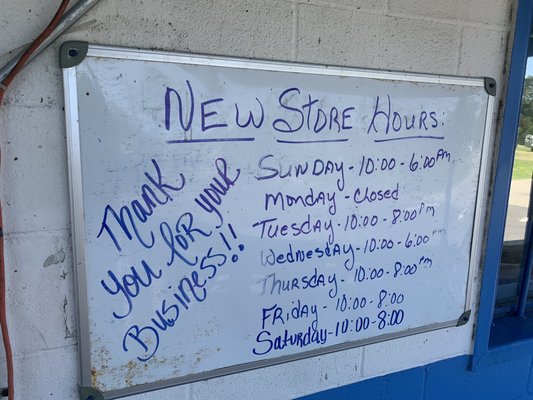 New Store Hours:
Sunday - 10:00 - 6:00 Am
Monday - Closed
Tuesday - 10:00 - 8:00 Pm
Wednesday - 10:00 - 6:00 Pm
Thursday - 10:00 - 8:00 Pm
Friday - 10:00 - 8:00
Saturday - 10:00 - 8:00
Thank
You for your
Business!!